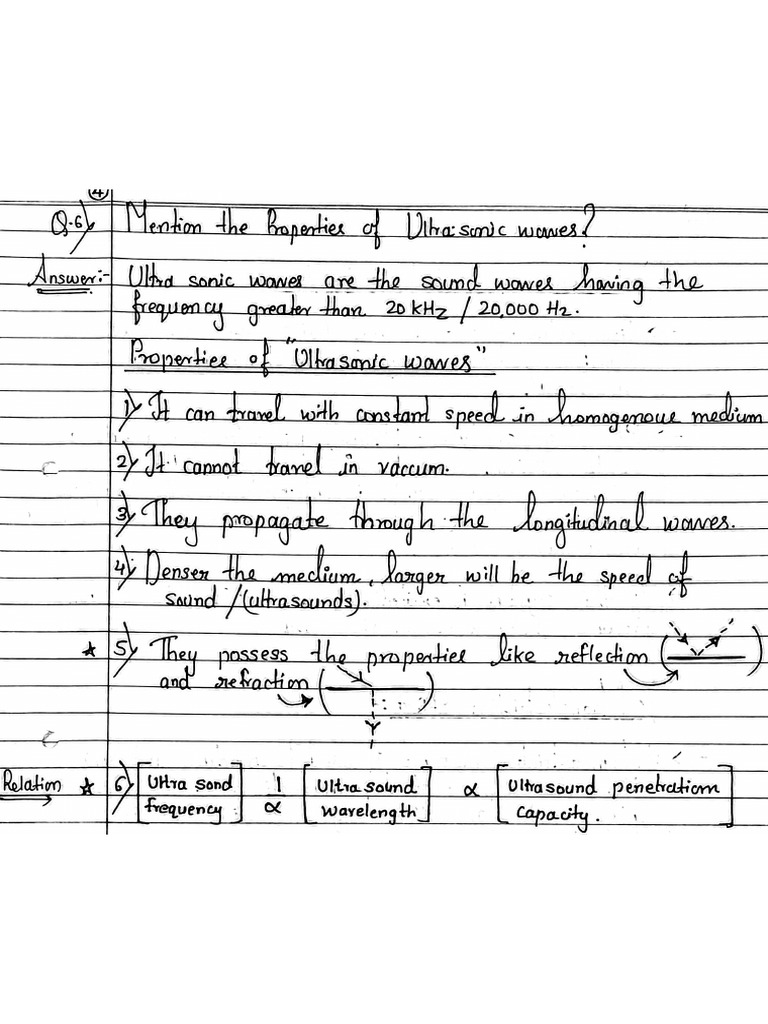 ④
Q.6) Mention the Properties of Ultra-sonic waves?
Answer:- Ultra sonic waves are the sound waves having the
frequency greater than 20 kHz / 20,000 Hz.
Properties of "Ultrasonic waves"
1) It can travel with constant speed in homogenous medium
2) It cannot travel in vaccum.
3) They propagate through the longitudinal waves.
4) Denser the medium, larger will be the speed of
sound /(ultrasounds).
★ 5) They possess the properties like reflection ( )
and refraction ( )
Relation ★ 6) [Ultra sond frequency] 1/∝ [Ultra sound wavelength] ∝ [Ultrasound penetration Capacity.]